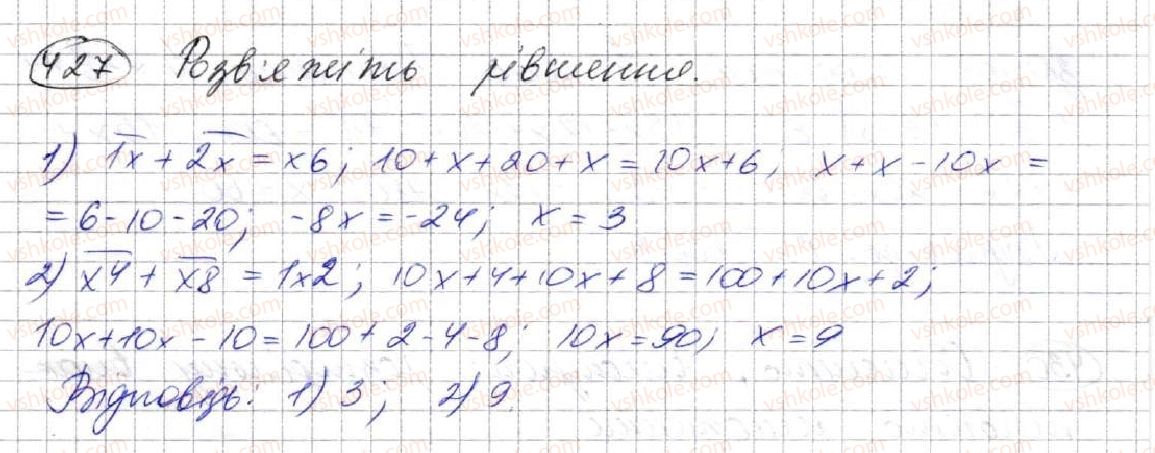 427 Розв'яжіть рівняння.
1) 1x + 2x = x6; 10+x+20+x = 10x+6; x+x-10x =
= 6-10-20; -8x = -24; x = 3
2) x4 + x8 = 1x2; 10x+4+10x+8 = 100+10x+2;
10x+10x-10=100+2-4-8; 10x=90; x=9
Відповідь: 1) 3; 2) 9.